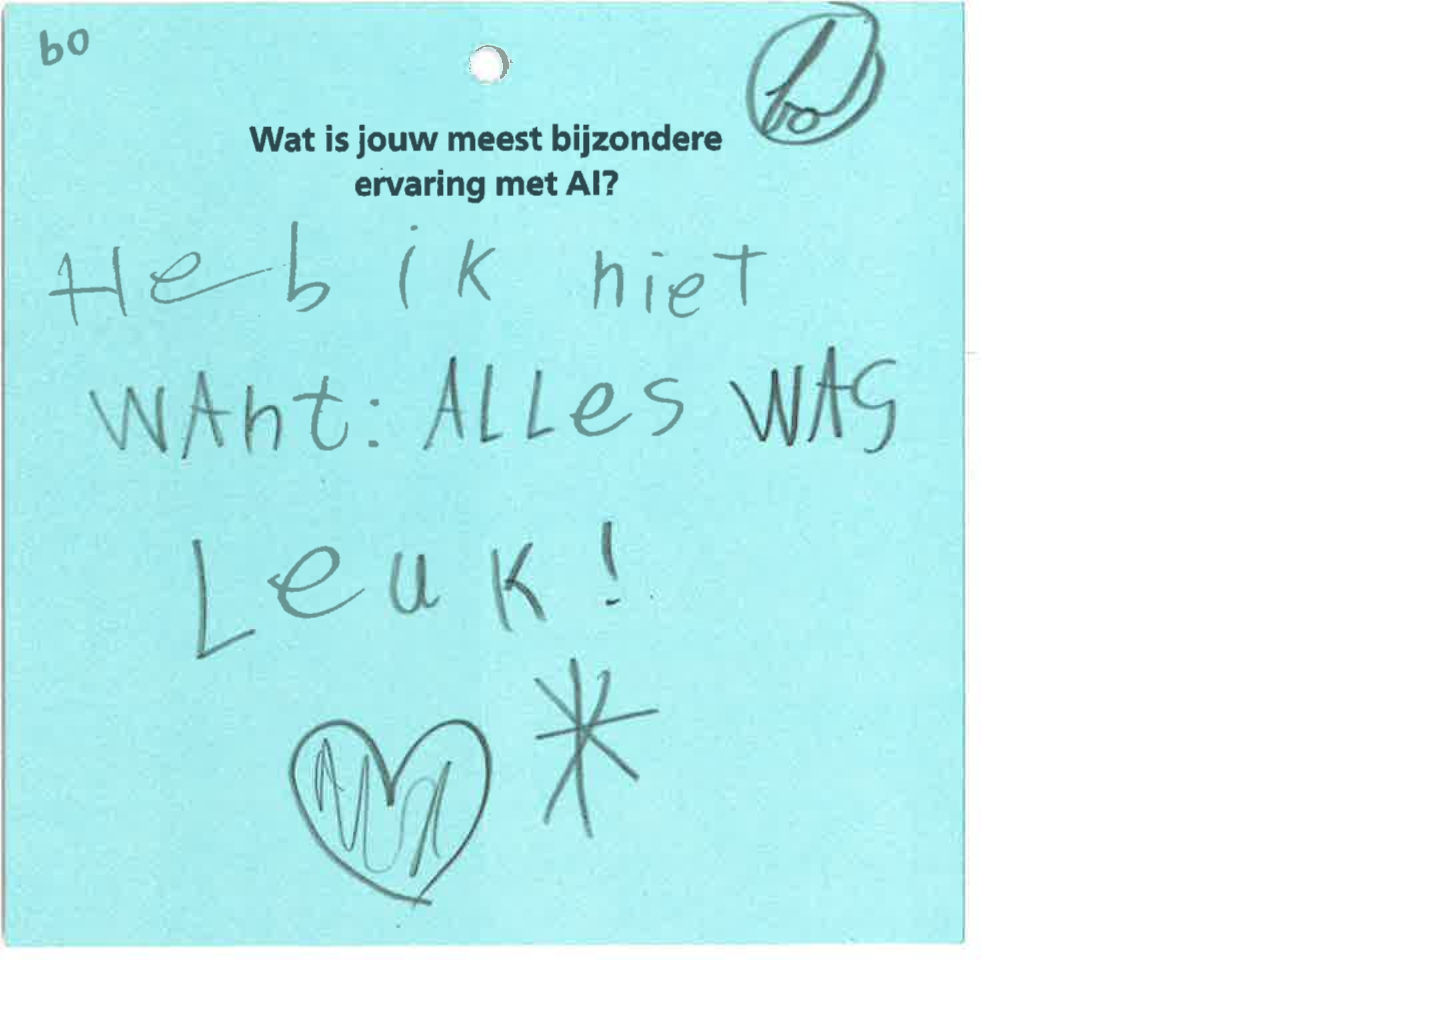 bo
bo
Wat is jouw meest bijzondere
ervaring met AI?
Heb ik niet
WAnt: ALLes WAS
Leuk!